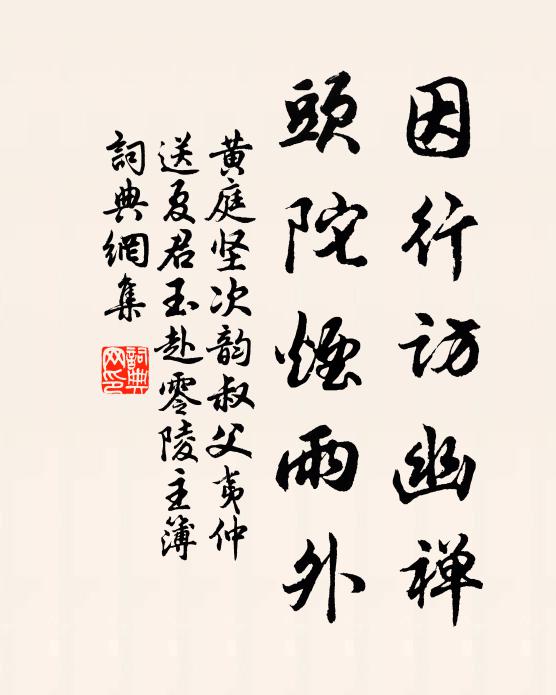 因行访幽禅
頭陀煙雨外
黄庭坚次韵叔父夷仲
送夏君玉赴零陵主簿
詞典網集
詞典网印